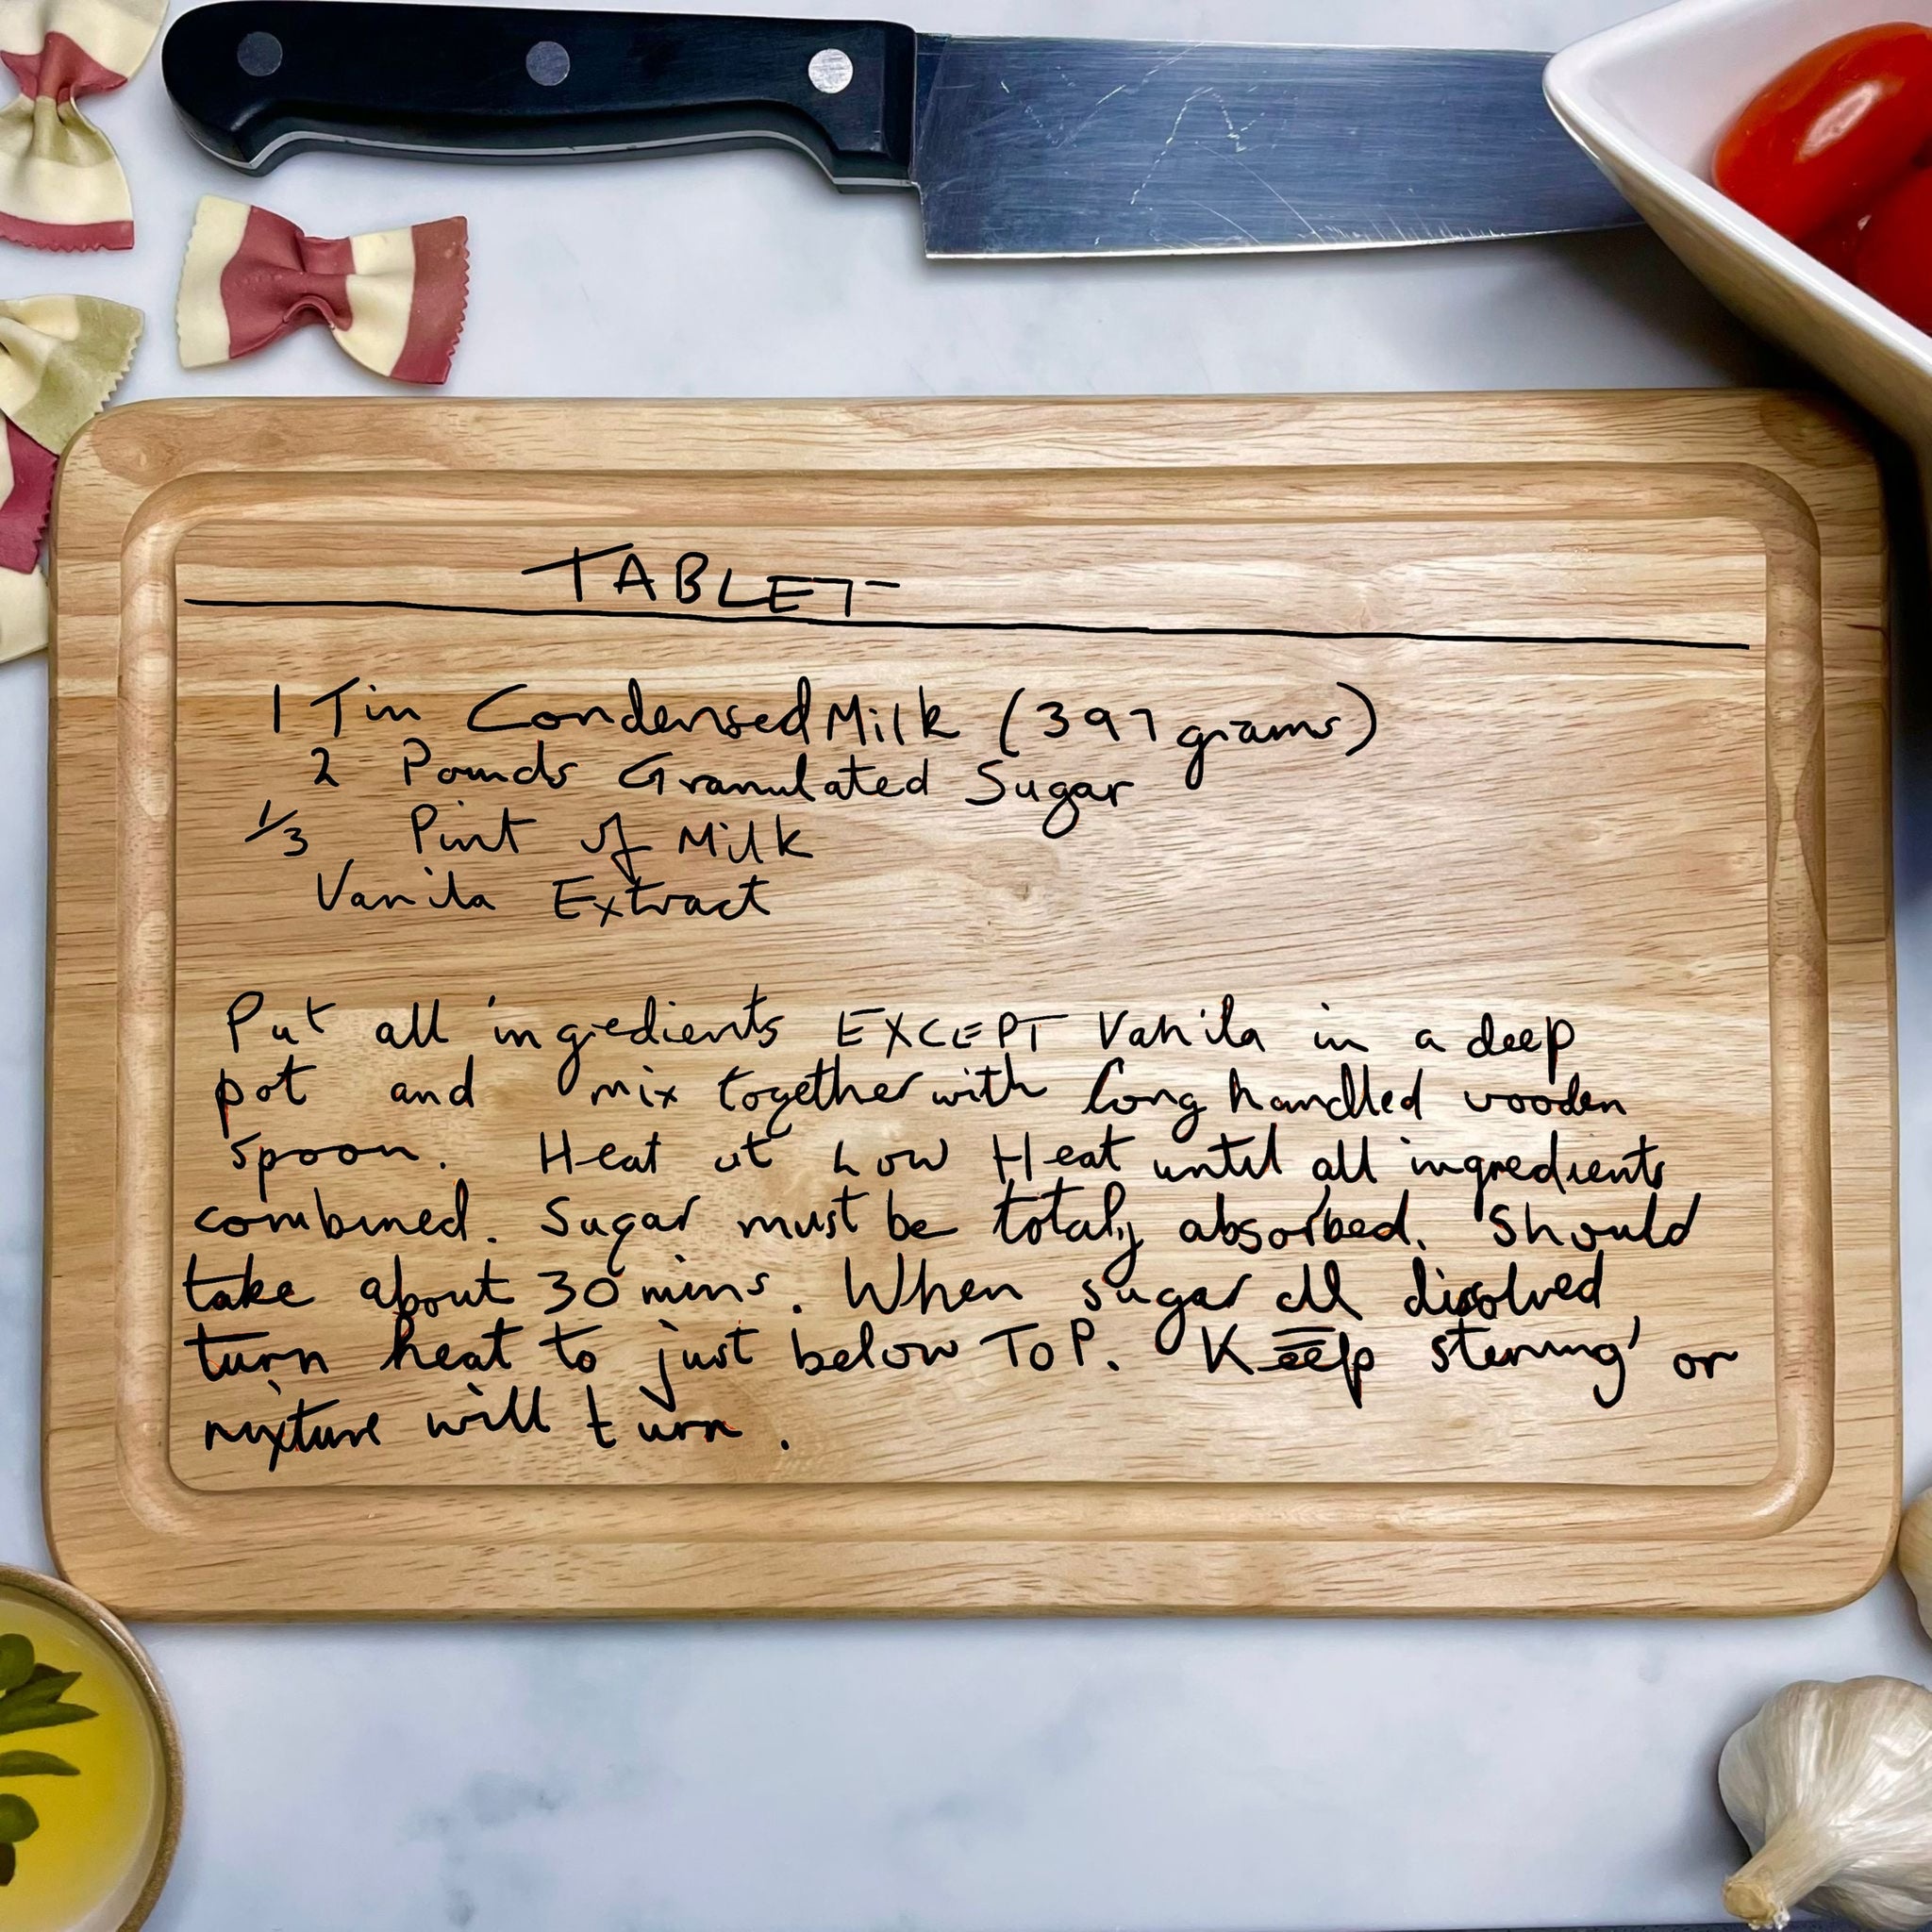 TABLET
1 Tin Condensed Milk (397 grams)
2 Pounds Granulated Sugar
1/3 Pint of Milk
Vanila Extract
Put all ingredients EXCEPT Vanila in a deep
pot and mix together with long handled wooden
spoon. Heat at Low Heat until all ingredients
combined. Sugar must be totaly absorbed. Should
take about 30 mins. When sugar all disolved
turn heat to just below TOP. Keep stirring or
mixture will turn.